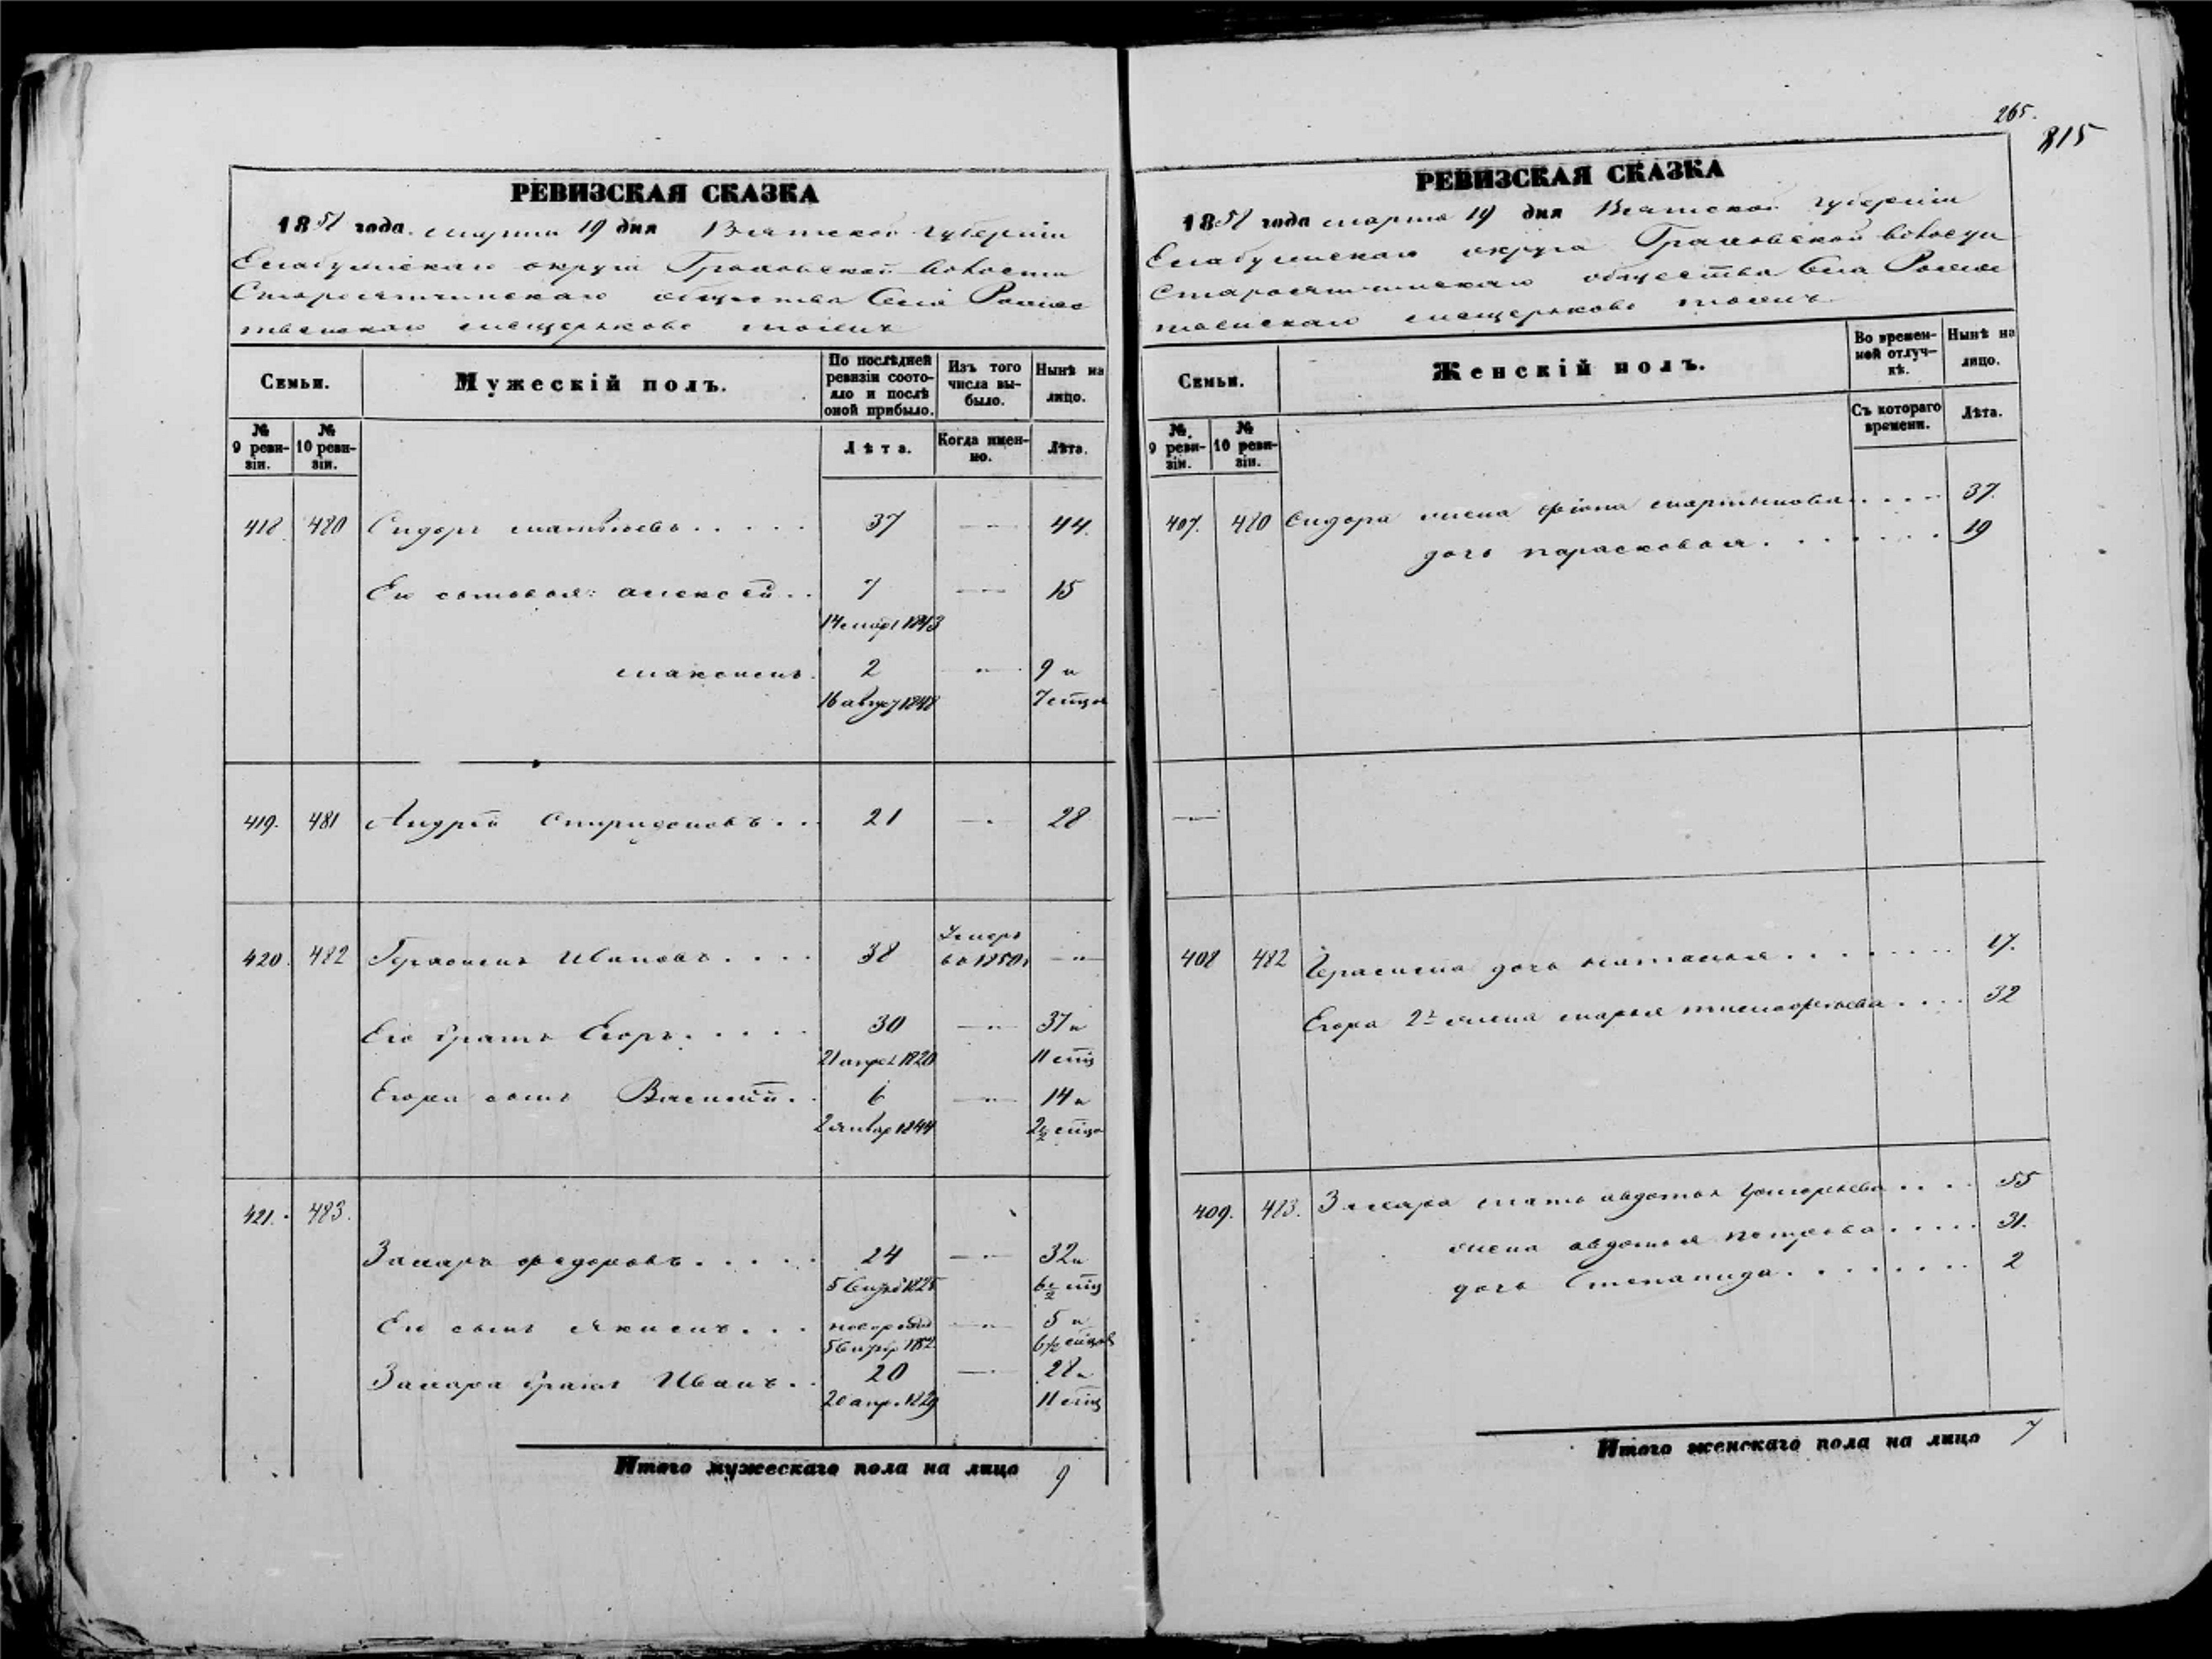 РЕВИЗСКАЯ СКАЗКА
1858 года марта 19 дня Вятской губерніи
Елабужскаго округа Граховской волости
общества Села Рожде
ственскаго тожъ
Семьи.
Мужескій полъ.
По послѣдней ревизіи состояло и послѣ оной прибыло.
Изъ того числа выбыло.
Нынѣ на лицо.
№ 9 ревизіи.
№ 10 ревизіи.
Лѣта.
Когда именно.
Лѣта.
418 480 Сидоръ Матвѣевъ 37 — 44.
Его сыновья: Алексѣй 7 — 15
14 март 1843
Максимъ 2 — 9 и
16 август 1848 7 мцов
419. 481 Андрей Спиридоновъ 21 — 28
420. 482 Герасимъ Ивановъ 38 Умеръ въ 1850г —
Его братъ Егоръ 30 — 37 и
21 апрел 1820 11 мц
Егора сынъ Василій 6 — 14 и
2 январ 1844 2½ мцо
421. 483.
Захаръ Федоровъ 24 — 32 и
5 1825 6½ мц
Его сынъ Якимъ — 5 и
5 1852 6½ мцов
Захара братъ Иванъ 20 — 28 и
20 апр. 1829 11 мц
Итого мужескаго пола на лицо 9
265.
815
РЕВИЗСКАЯ СКАЗКА
1858 года марта 19 дня Вятской губерніи
Елабужскаго округа Граховской волости
общества Села Рожде
ственскаго тожъ
Семьи.
Женскій полъ.
Во временной отлучкѣ.
Нынѣ на лицо.
№. 9 ревизіи.
№ 10 ревизіи.
Съ котораго времени.
Лѣта.
407. 480 Сидора жена Мартынова 37.
дочь Парасковья 19
—
408 482 Герасима дочь Наталья 17.
Егора 2я жена Марья Тимофеева 32
409. 483. Захара мать Авдотья Григорьева 55
жена Авдотья Петрова 31.
дочь Степанида 2
Итого женскаго пола на лицо 7